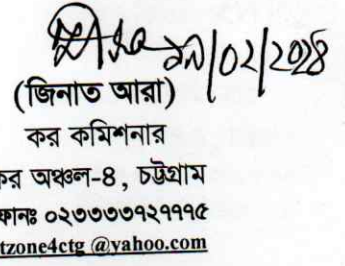 ২৯/০২/২০২৪
(জিনাত আরা)
কর কমিশনার
কর অঞ্চল-৪, চট্টগ্রাম
ফোনঃ ০২৩৩৩৩৭২৭৭৭৫
tzone4ctg @yahoo.com